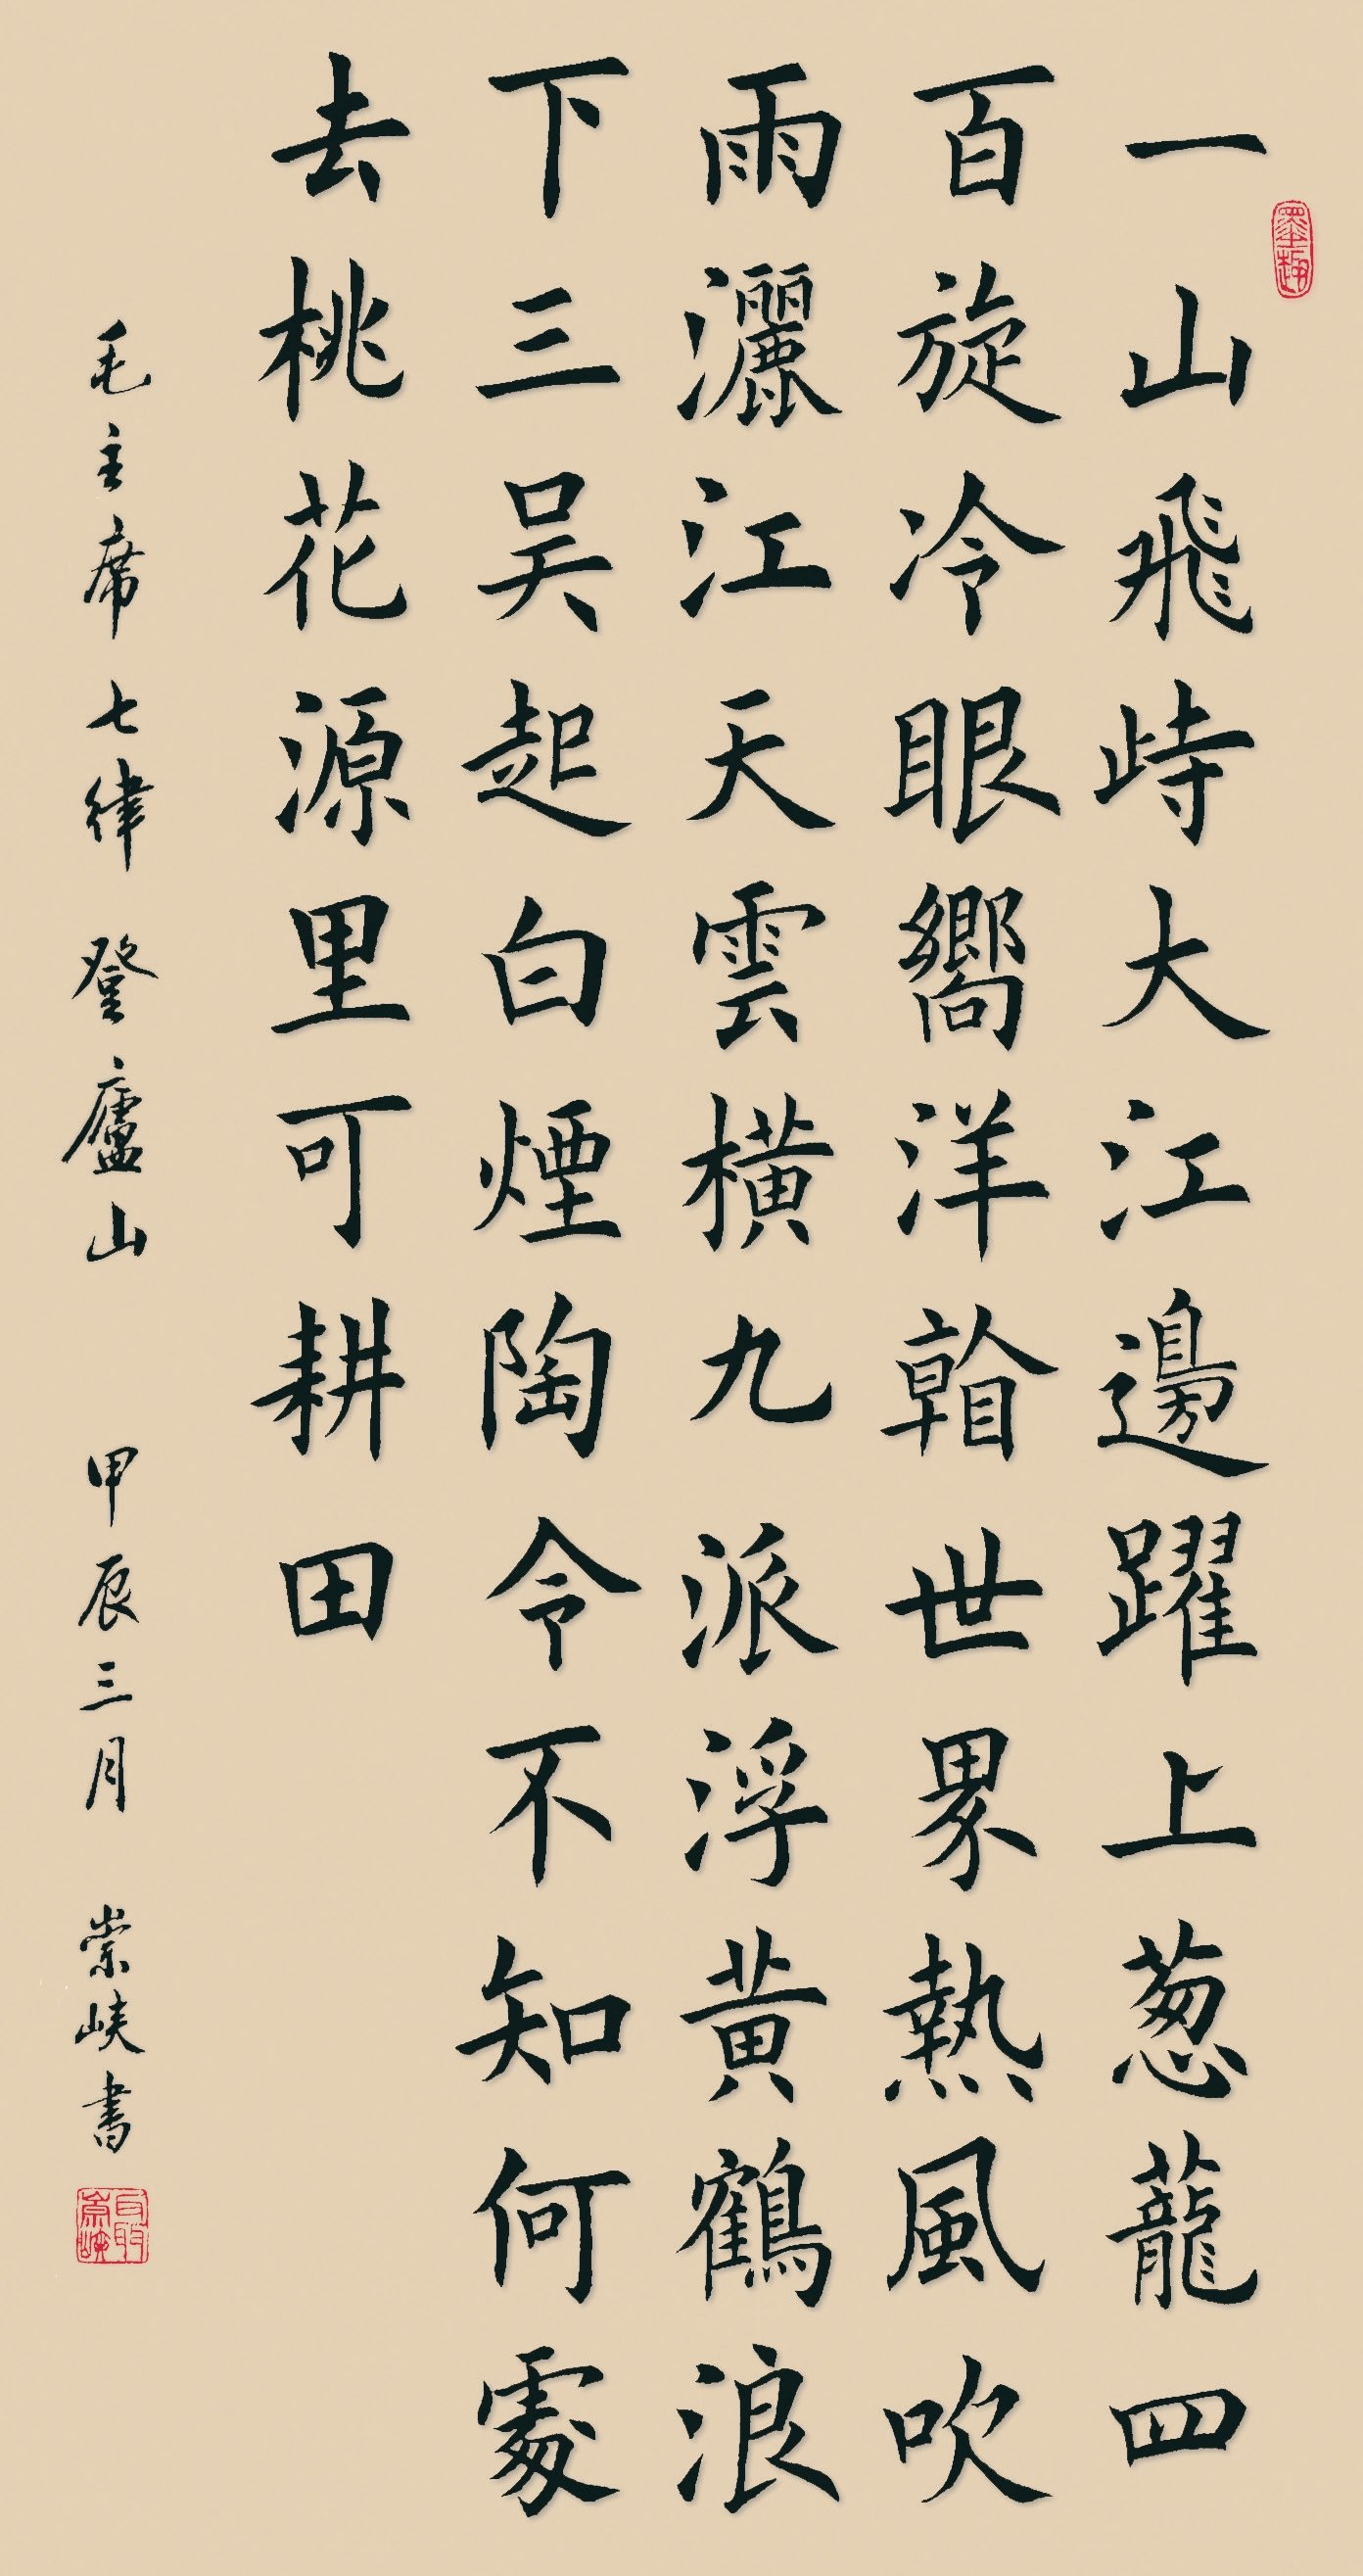 墨趣
一山飛峙大江邊躍上葱蘢四
百旋冷眼嚮洋看世界熱風吹
雨灑江天雲橫九派浮黄鶴浪
下三吴起白煙陶令不知何處
去桃花源里可耕田
毛主席七律登廬山 甲辰三月 崇峽書